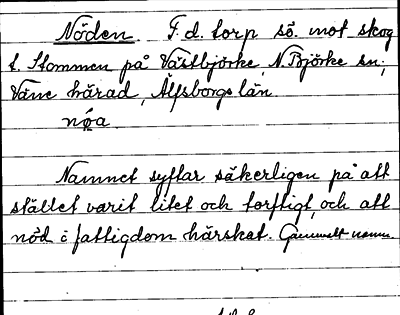 Nöden. F. d. torp sö. mot skog
t. Stommen på Västbjörke, N. Björke sn;
Väne härad, Älfsborgs län
nǿa
Namnet syftar säkerligen på att
stället varit litet och torftigt, och att
nöd i fattigdom härskat. Gammalt namn.